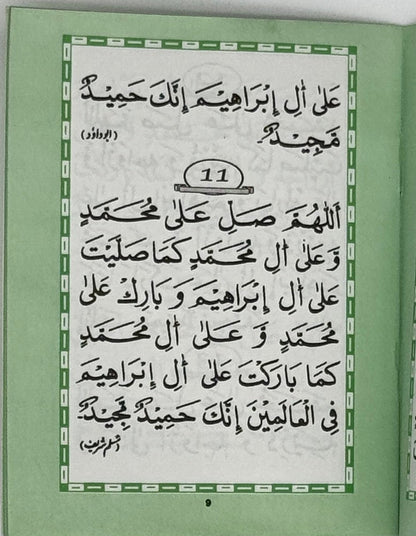 عَلىٰ اٰلِ اِبْرَاهِيْمَ اِنَّكَ حَمِيْدٌ
مَّجِيْدٌ۔
(ابوداؤد)
11
اَللّٰهُمَّ صَلِّ عَلىٰ مُحَمَّدٍ
وَّعَلىٰ اٰلِ مُحَمَّدٍ كَمَا صَلَّيْتَ
عَلىٰ اٰلِ اِبْرَاهِيْمَ وَ بَارِكْ عَلىٰ
مُحَمَّدٍ وَّ عَلىٰ اٰلِ مُحَمَّدٍ
كَمَا بَارَكْتَ عَلىٰ اٰلِ اِبْرَاهِيْمَ
فِي الْعَالَمِيْنَ اِنَّكَ حَمِيْدٌ مَّجِيْدٌ
(مسلم شریف)
9